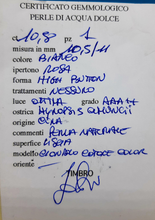 CERTIFICATO GEMMOLOGICO
PERLE DI ACQUA DOLCE
ct 10,8 pz 1
misura in mm 10,5/11
colore BIANCO
ipertono ROSA
forma HIGH BUTTON
trattamenti NESSUNO
luce OTTIMA grado AAA++
ostrica HYRIOPSIS CUMINGII
origine CINA
commenti PERLA NATURALE
superficie LISCIA
modello COLOR
oriente
TIMBRO